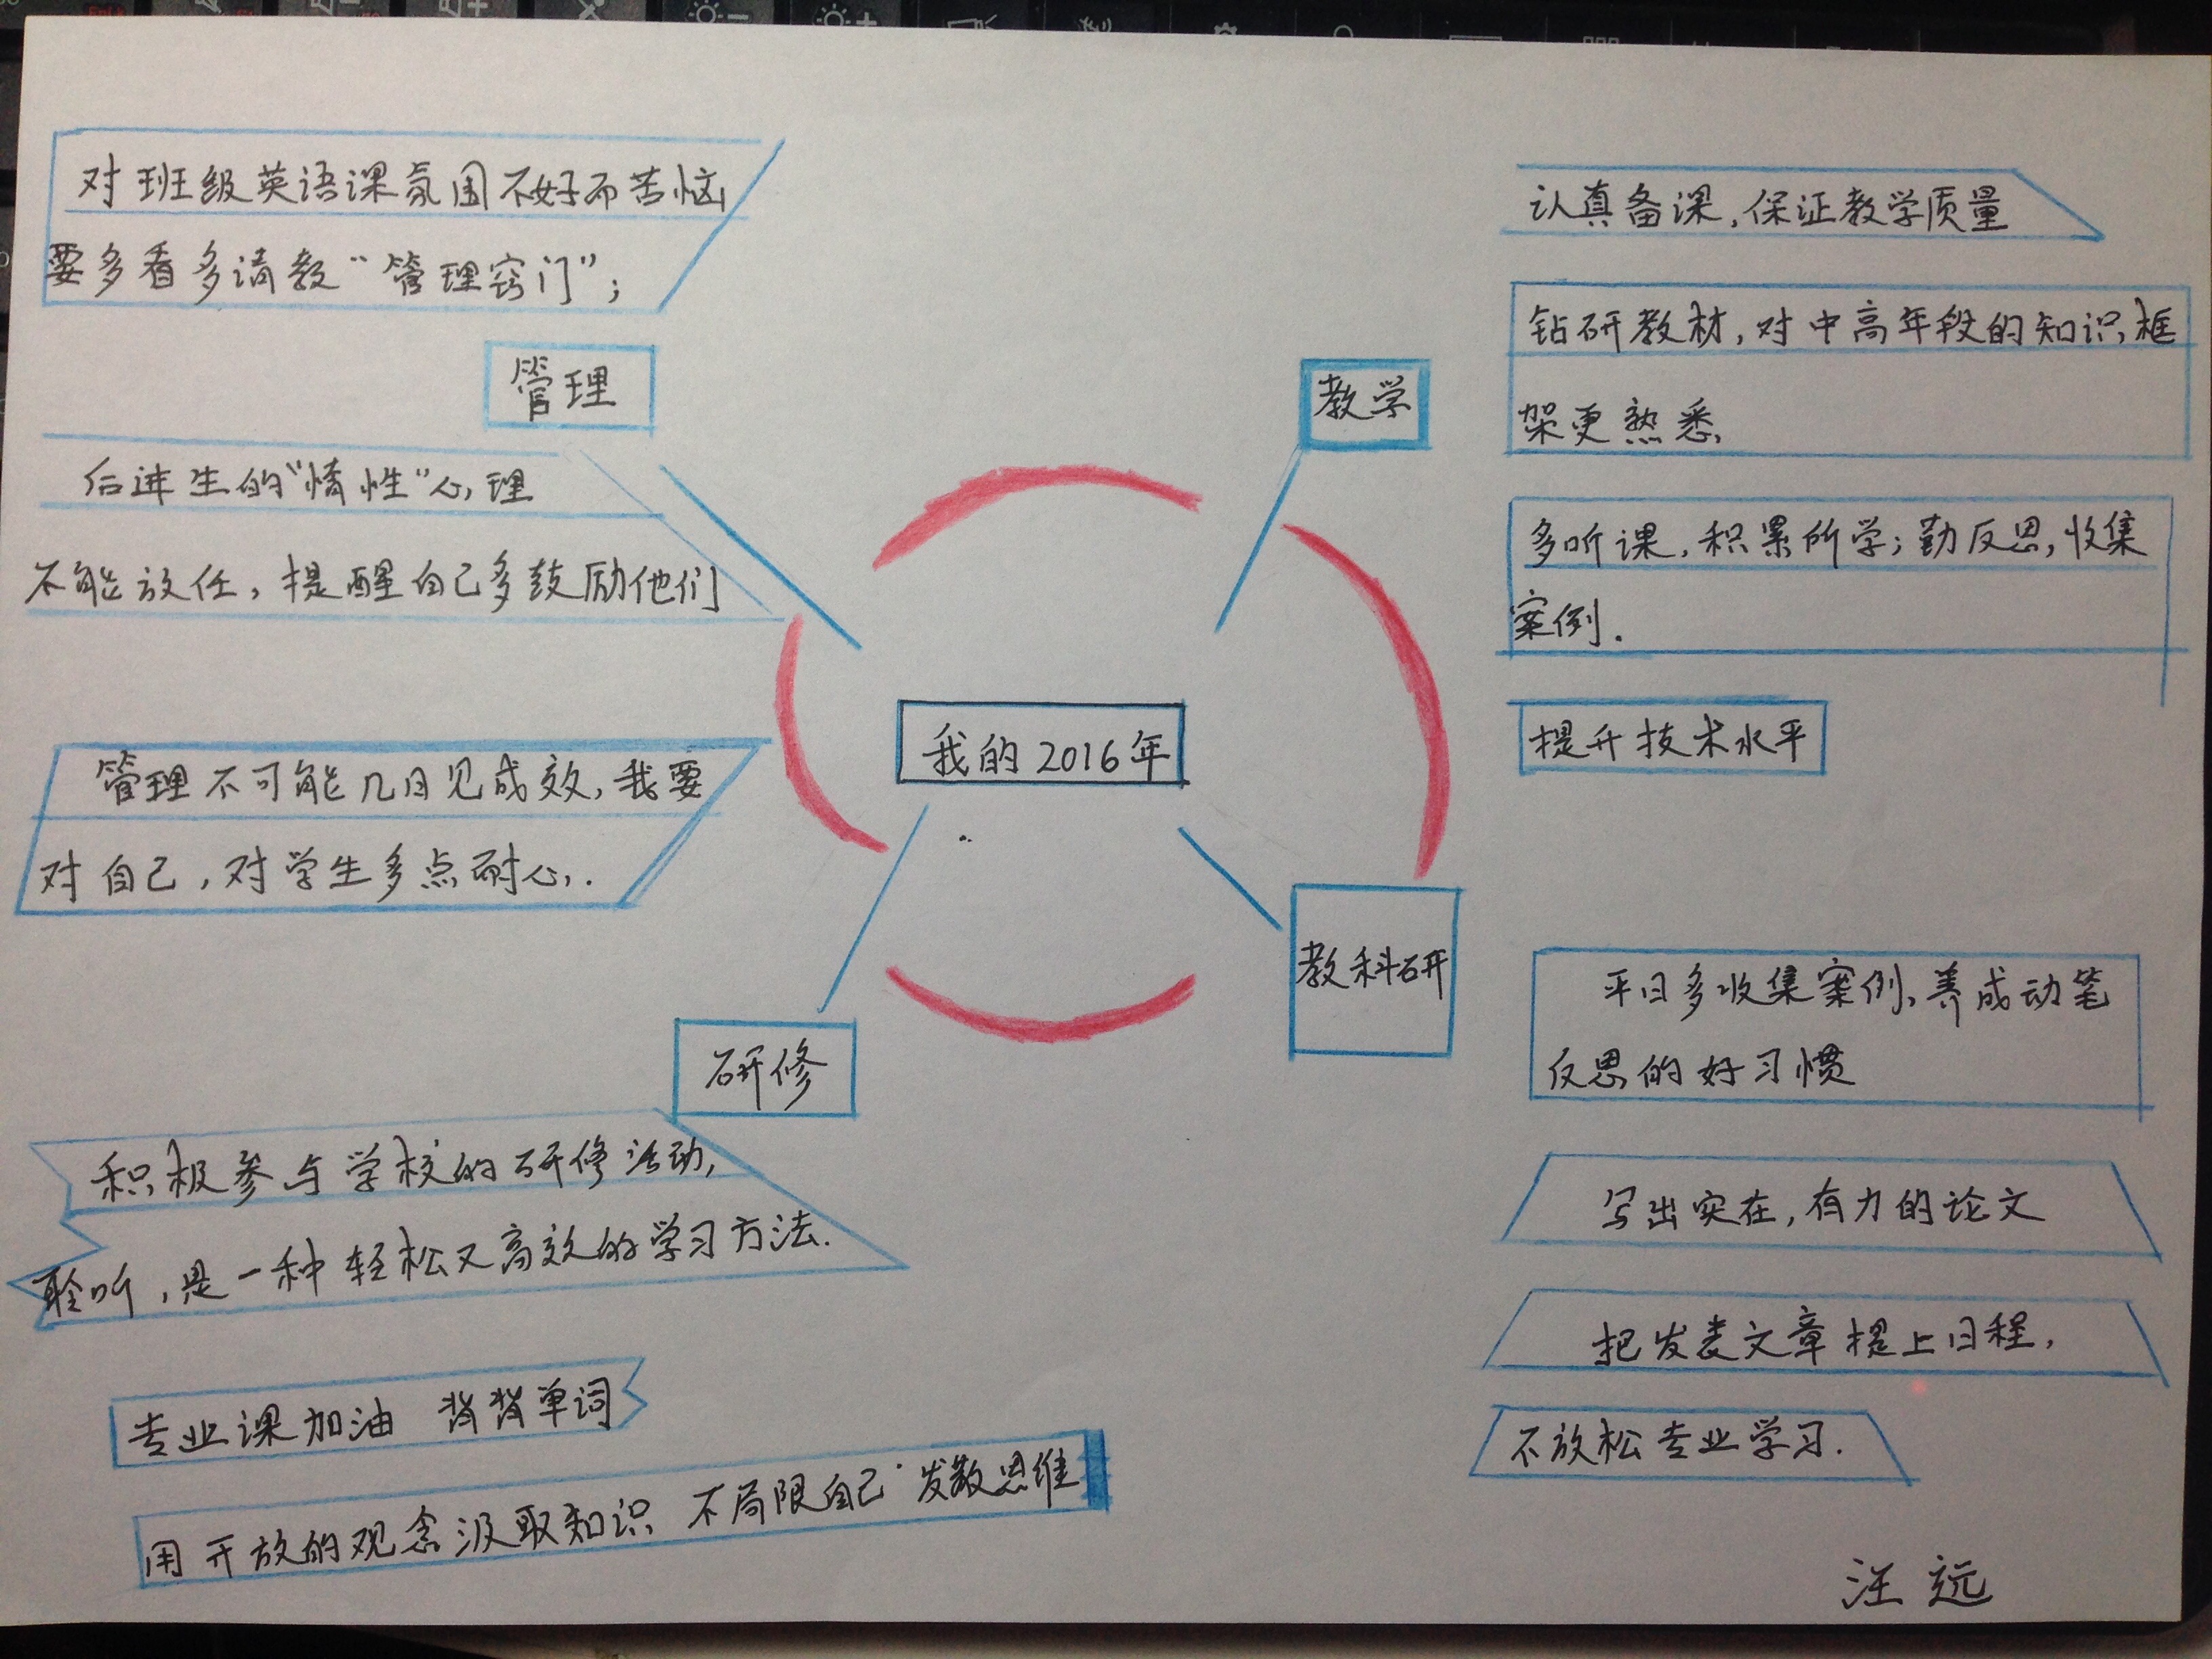 我的2016年
管理
对班级英语课氛围不好而苦恼
要多看多请教“管理窍门”；
后进生的“情性”心理
不能放任，提醒自己多鼓励他们
管理不可能几日见成效，我要
对自己，对学生多点耐心．
教学
认真备课，保证教学质量
钻研教材，对中高年段的知识框
架更熟悉
多听课，积累所学；勤反思，收集
案例．
提升技术水平
教科研
平日多收集案例，养成动笔
反思的好习惯
写出实在，有力的论文
把发表文章提上日程，
不放松专业学习．
研修
积极参与学校的研修活动，
聆听，是一种轻松又高效的学习方法．
专业课加油 背背单词
用开放的观念汲取知识 不局限自己 发散思维
汪远